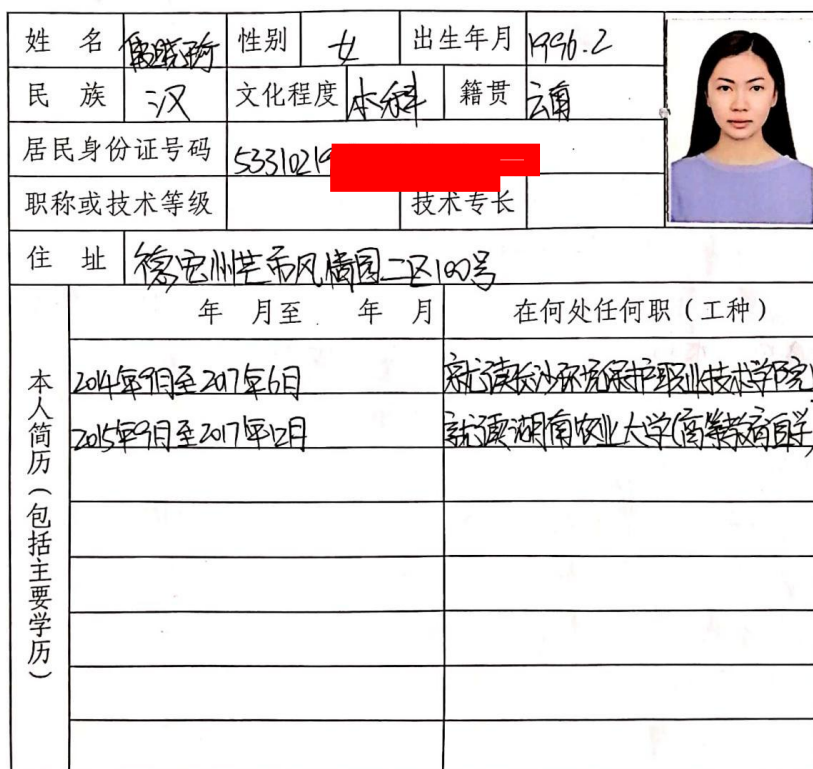 姓 名 性别 女 出生年月 1996.2
民 族 汉 文化程度 本科 籍贯 云南
居民身份证号码 53310219
职称或技术等级 技术专长
住 址 德宏州芒市风情园二区100号
年 月至 年 月 在何处任何职(工种)
本人简历(包括主要学历)
2014年9月至2017年6月 就读长沙环境保护职业技术学院
2015年9月至2017年12月 就读湖南农业大学(高等教育自学